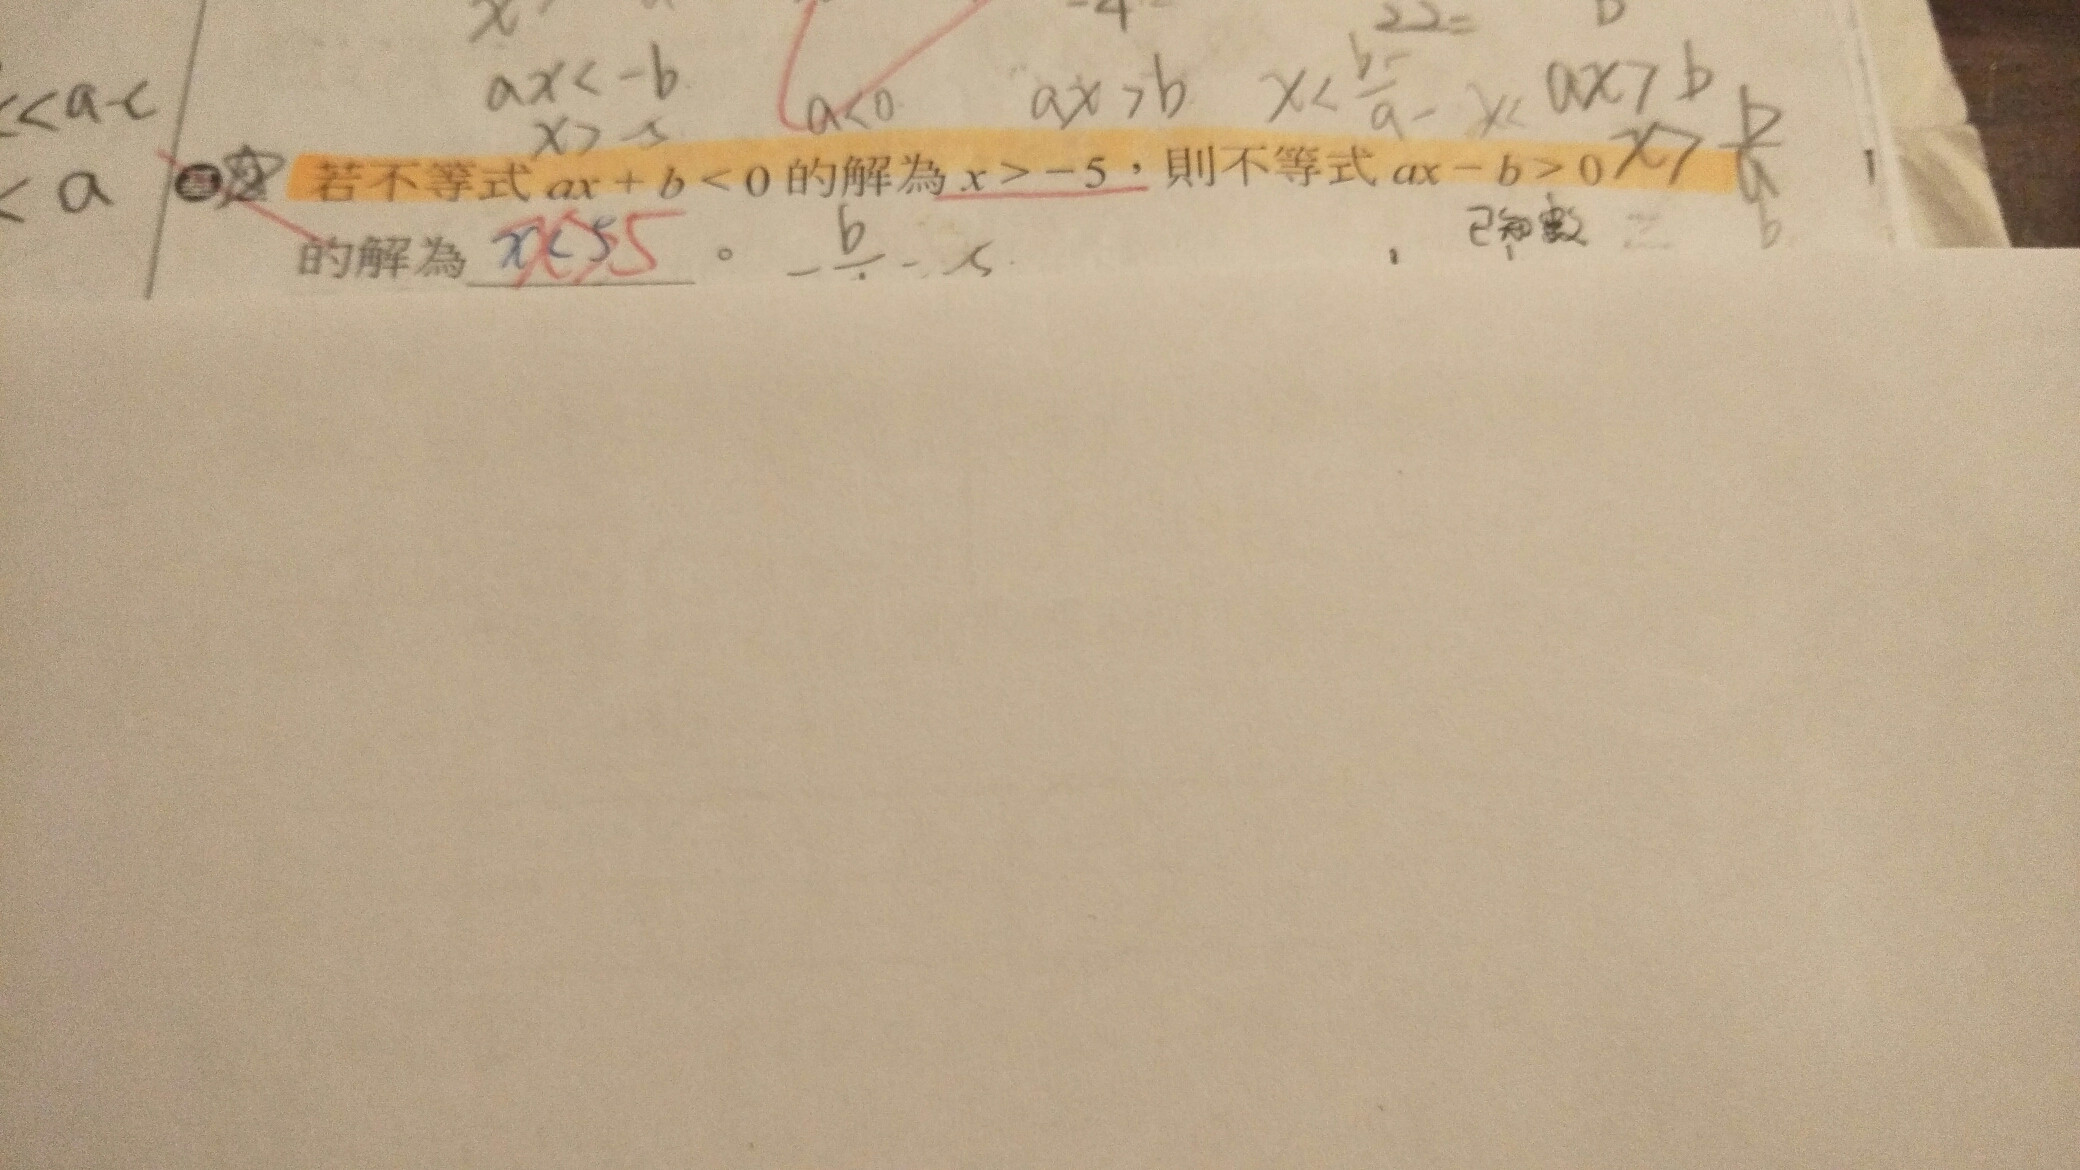 -4
22=
<a-c
ax<-b
a<0
ax>b
x<
ax>b
x>-5
x> b/a
<a
若不等式 ax+b<0 的解為 x>-5,則不等式 ax-b>0
已知數
的解為 x<5 。